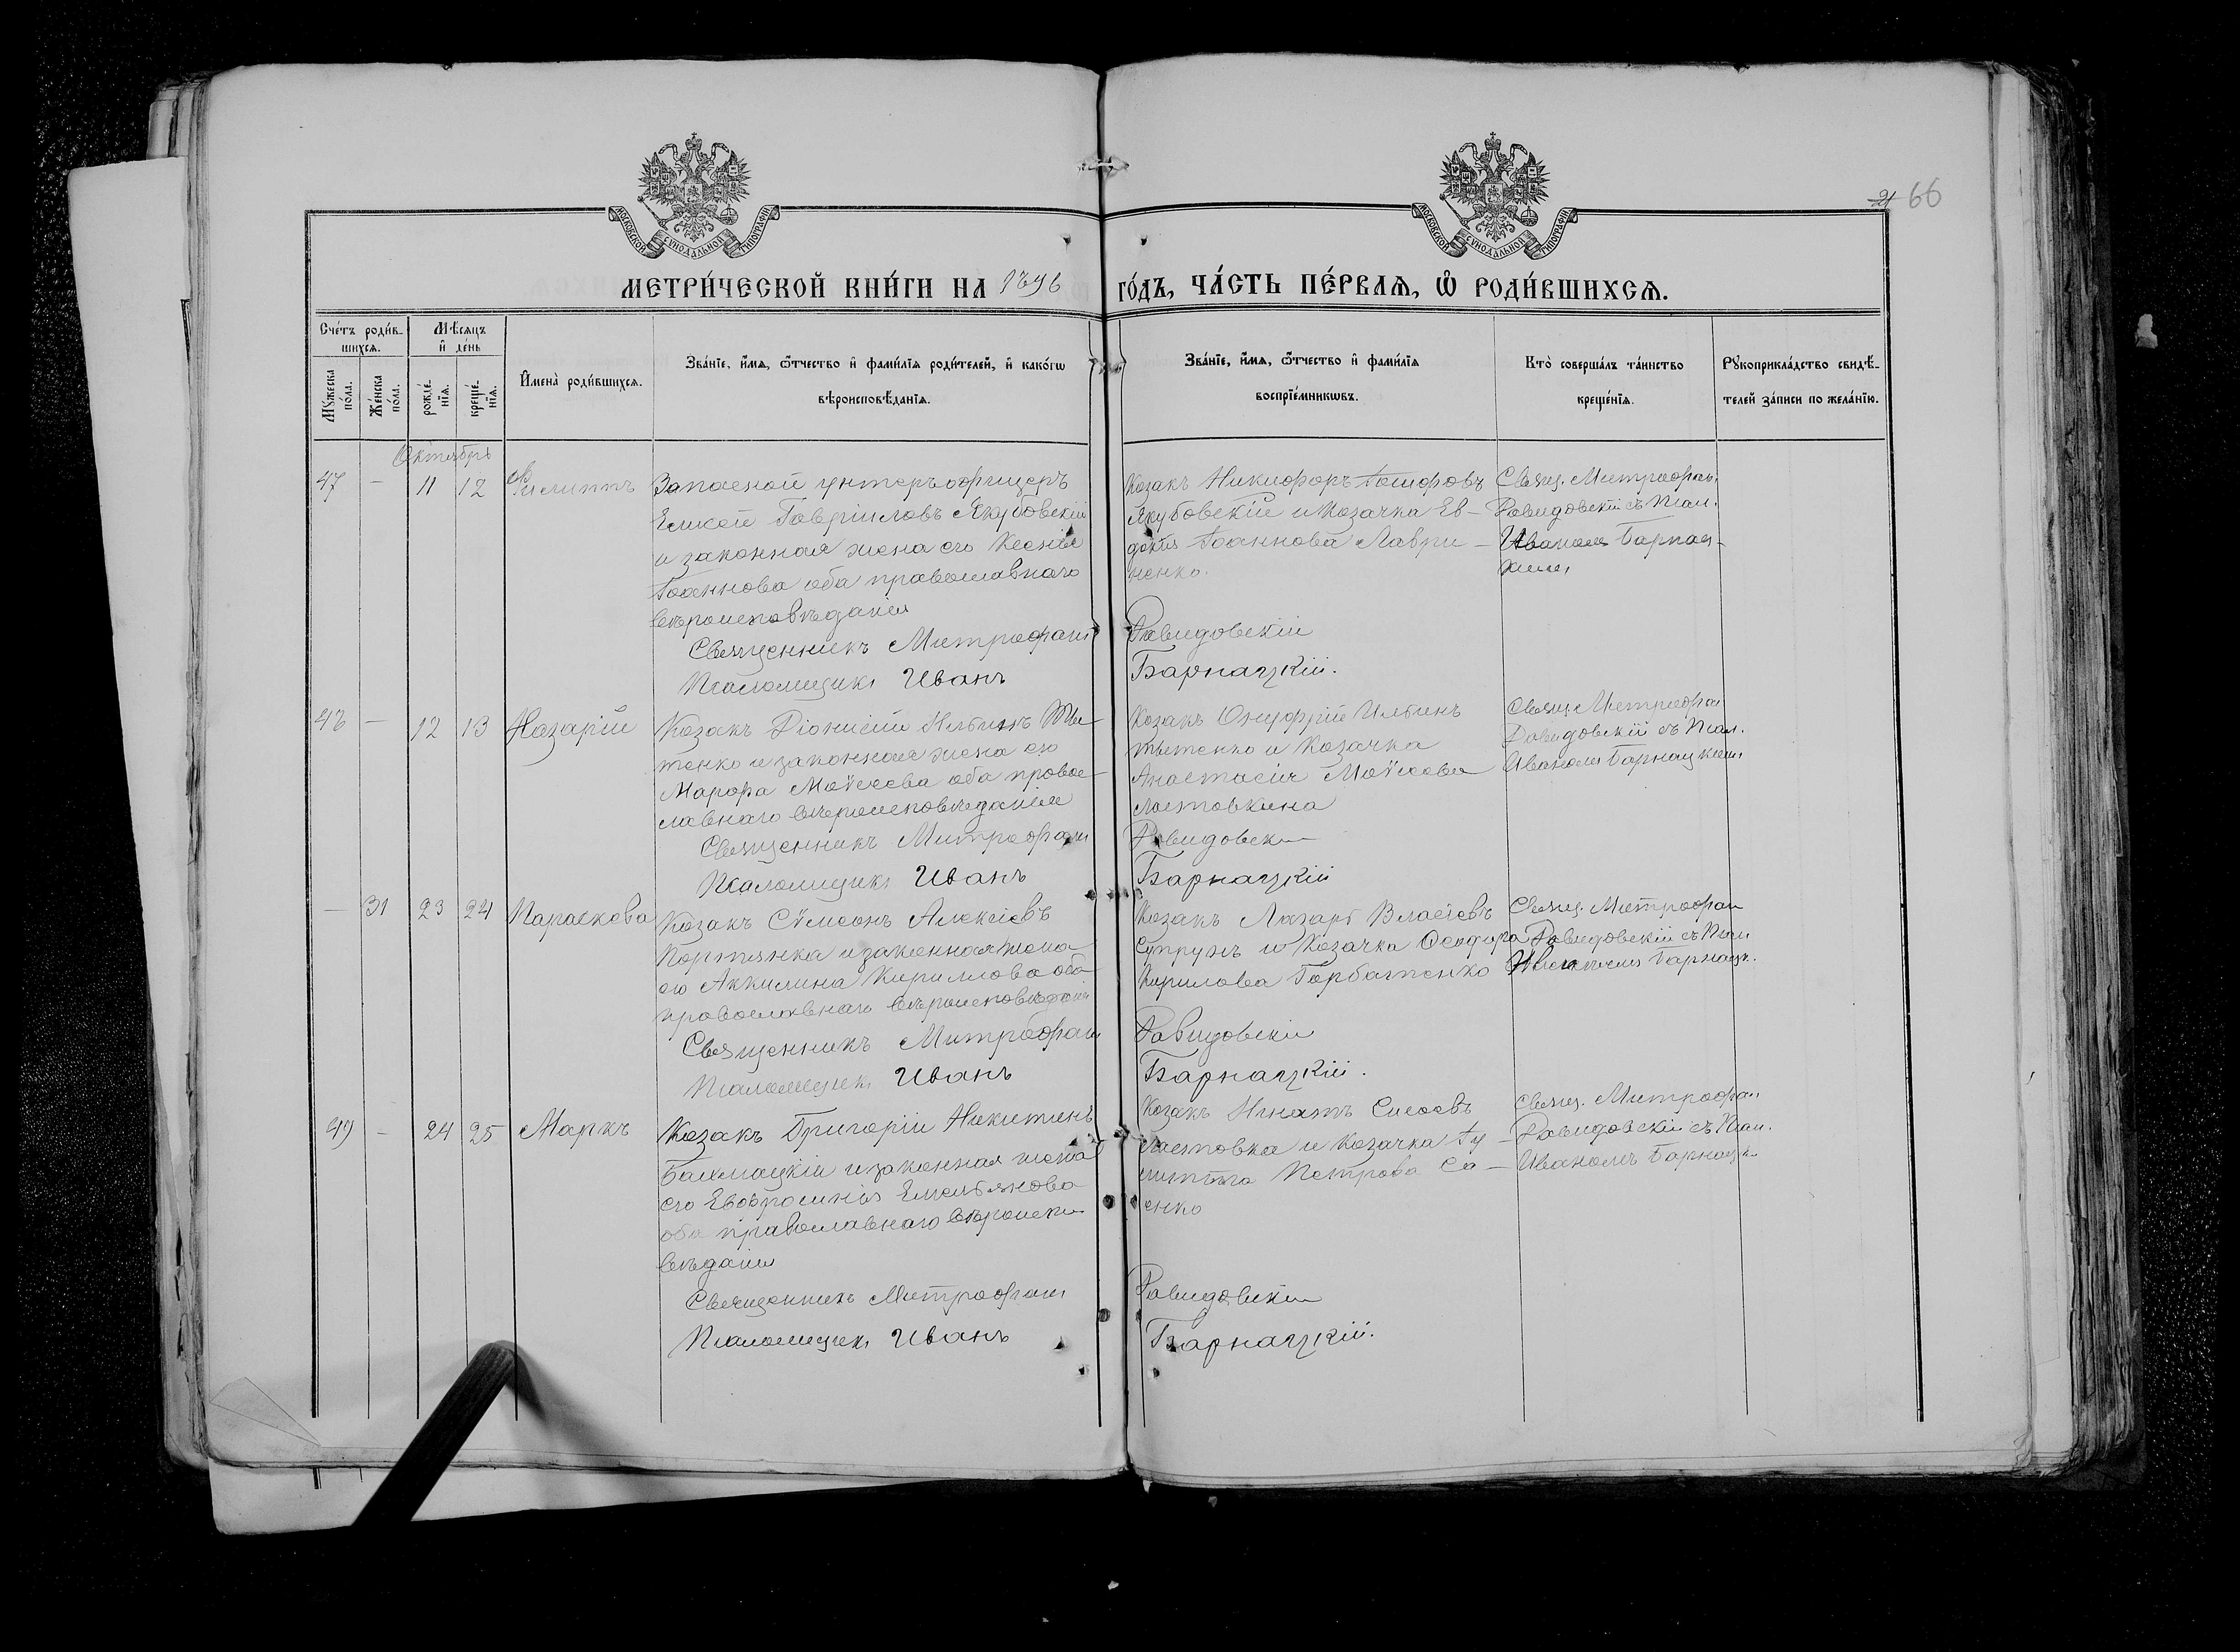 21 66
МОСКОВСКОЙ СѴНОДАЛЬНОЙ ТИПОГРАФІИ
МОСКОВСКОЙ СѴНОДАЛЬНОЙ ТИПОГРАФІИ
МЕТРИ́ЧЕСКОЙ КНИ́ГИ НА 1896 ГО́ДЪ, ЧА́СТЬ ПЕ́РВАѦ, Ѡ҆ РОДИ́ВШИХСѦ.
Сче́тъ роди́в-
шихсѧ.
Мꙋ́жеска по́ла.
Же́нска по́ла.
Мѣ́сѧцъ
и҆ де́нь
рожде́-
нїѧ.
креще́-
нїѧ.
И҆мена̀ роди́вшихсѧ.
Зва́нїе, и҆́мѧ, ѻ҆́тчество и҆ фами́лїѧ роди́телей, и҆ како́гѡ
вѣроисповѣ́данїѧ.
Зва́нїе, и҆́мѧ, ѻ҆́тчество и҆ фами́лїѧ
воспрїе́мникѡвъ.
Кто̀ соверша́лъ та́инство
креще́нїѧ.
Рꙋкоприкла́дство свидѣ́-
телей за́писи по жела́нїю.
Октябрь
47 — 11 12 Филиппъ
Запасной унтеръ офицеръ
Гавріиловъ Якубовскій
и законная жена его Ксенія
Іоаннова оба православнаго
вѣроисповѣданія
Священникъ Митрофанъ
Псаломщикъ Иванъ
Козакъ Никифоръ
Якубовскій и Козачка Ев-
докія Іоаннова Лаври-
ненко.
Давидовскій
Барнацкій.
Свящ. Митрофан.
Давидовскій съ Псал.
Иваномъ Барнац-
кимъ
48 — 12 13 Назарій
Козакъ Діонисій Ильинъ Ти-
тенко и законная жена его
Марфа Моѵсеева оба право-
славнаго вѣроисповѣданія
Священникъ Митрофанъ
Псаломщикъ Иванъ
Козакъ Онуфрій Ильинъ
и Козачка
Анастасія Моѵсеева
Ластовкина
Давидовскі
Барнацкій
Свящ. Митрофан
Давидовскій съ Псал.
Иваномъ Барнацкимъ
— 31 23 24 Параскева
Козакъ Сѵмеонъ Алексіевъ
Портянка и законная жена
его Акилина Кириллова оба
православнаго вѣроисповѣданія
Священникъ Митрофанъ
Псаломщикъ Иванъ
Козакъ Лазарь Власіевъ
Супрунъ и Козачка Ѳеодора
Кирилова Горбатенко
Давидовскій
Барнацкій.
Свящ. Митрофан
Давидовскій съ Псал
Иваномъ Барнацк.
49 — 24 25 Маркъ
Козакъ Григорій Никитинъ
Бахмацкій и законная жена
его Евфросинія Емельянова
оба православнаго вѣроиспо
вѣданія
Священникъ Митрофанъ
Псаломщикъ Иванъ
Козакъ Игнатъ Сысоевъ
Ластовка и Козачка Іу-
литта Петрова Са-
енко
Давидовскій
Барнацкій.
Свящ. Митрофан
Давидовскій съ Псал.
Иваномъ Барнацк.